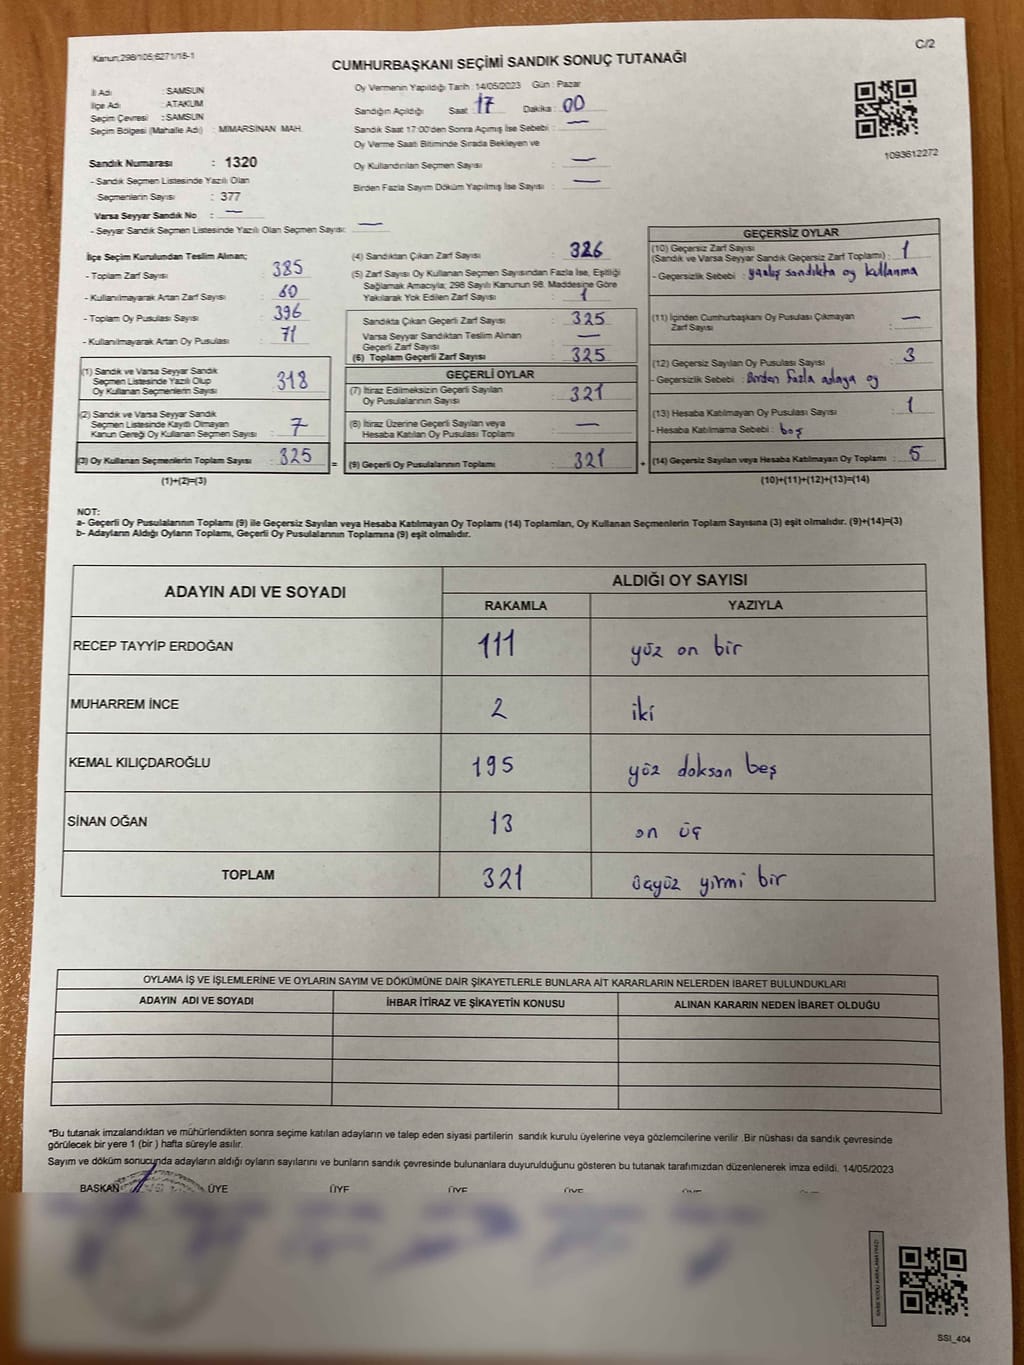 Kanun;298/105;6271/15-1
C/2
CUMHURBAŞKANI SEÇİMİ SANDIK SONUÇ TUTANAĞI
İl Adı : SAMSUN
İlçe Adı : ATAKUM
Seçim Çevresi : SAMSUN
Seçim Bölgesi (Mahalle Adı) : MİMARSİNAN MAH.
Sandık Numarası : 1320
- Sandık Seçmen Listesinde Yazılı Olan
Seçmenlerin Sayısı : 377
Varsa Seyyar Sandık No : —
- Seyyar Sandık Seçmen Listesinde Yazılı Olan Seçmen Sayısı: —
Oy Vermenin Yapıldığı Tarih : 14/05/2023 Gün : Pazar
Sandığın Açıldığı Saat : 17 Dakika : 00
Sandık Saat 17:00'den Sonra Açımış İse Sebebi : —
Oy Verme Saati Bitiminde Sırada Bekleyen ve
Oy Kullandırılan Seçmen Sayısı : —
Birden Fazla Sayım Döküm Yapılmış İse Sayısı : —
1093612272
İlçe Seçim Kurulundan Teslim Alınan;
- Toplam Zarf Sayısı : 385
- Kullanılmayarak Artan Zarf Sayısı : 60
- Toplam Oy Pusulası Sayısı : 396
- Kullanılmayarak Artan Oy Pusulası : 71
(1) Sandık ve Varsa Seyyar Sandık
Seçmen Listesinde Yazılı Olup
Oy Kullanan Seçmenlerin Sayısı : 318
(2) Sandık ve Varsa Seyyar Sandık
Seçmen Listesinde Kayıtlı Olmayan
Kanun Gereği Oy Kullanan Seçmen Sayısı : 7
(3) Oy Kullanan Seçmenlerin Toplam Sayısı : 325
(1)+(2)=(3)
(4) Sandıktan Çıkan Zarf Sayısı : 326
(5) Zarf Sayısı Oy Kullanan Seçmen Sayısından Fazla İse, Eşitliği
Sağlamak Amacıyla; 298 Sayılı Kanunun 98. Maddesine Göre
Yakılarak Yok Edilen Zarf Sayısı : 1
Sandıkta Çıkan Geçerli Zarf Sayısı : 325
Varsa Seyyar Sandıktan Teslim Alınan
Geçerli Zarf Sayısı : —
(6) Toplam Geçerli Zarf Sayısı : 325
GEÇERLİ OYLAR
(7) İtiraz Edilmeksizin Geçerli Sayılan
Oy Pusulalarının Sayısı : 321
(8) İtiraz Üzerine Geçerli Sayılan veya
Hesaba Katılan Oy Pusulası Toplamı : —
= (9) Geçerli Oy Pusulalarının Toplamı : 321
GEÇERSİZ OYLAR
(10) Geçersiz Zarf Sayısı
(Sandık ve Varsa Seyyar Sandık Geçersiz Zarf Toplamı) : 1
- Geçersizlik Sebebi : yanlış sandıkta oy kullanma
(11) İçinden Cumhurbaşkanı Oy Pusulası Çıkmayan
Zarf Sayısı : —
(12) Geçersiz Sayılan Oy Pusulası Sayısı : 3
- Geçersizlik Sebebi : Birden fazla adaya oy
(13) Hesaba Katılmayan Oy Pusulası Sayısı : 1
- Hesaba Katılmama Sebebi : boş
+ (14) Geçersiz Sayılan veya Hesaba Katılmayan Oy Toplamı : 5
(10)+(11)+(12)+(13)=(14)
NOT:
a- Geçerli Oy Pusulalarının Toplamı (9) ile Geçersiz Sayılan veya Hesaba Katılmayan Oy Toplamı (14) Toplamları, Oy Kullanan Seçmenlerin Toplam Sayısına (3) eşit olmalıdır. (9)+(14)=(3)
b- Adayların Aldığı Oyların Toplamı, Geçerli Oy Pusulalarının Toplamına (9) eşit olmalıdır.
ADAYIN ADI VE SOYADI
ALDIĞI OY SAYISI
RAKAMLA YAZIYLA
RECEP TAYYİP ERDOĞAN 111 yüz on bir
MUHARREM İNCE 2 iki
KEMAL KILIÇDAROĞLU 195 yüz doksan beş
SİNAN OĞAN 13 on üç
TOPLAM 321 üçyüz yirmi bir
OYLAMA İŞ VE İŞLEMLERİNE VE OYLARIN SAYIM VE DÖKÜMÜNE DAİR ŞİKAYETLERLE BUNLARA AİT KARARLARIN NELERDEN İBARET BULUNDUKLARI
ADAYIN ADI VE SOYADI İHBAR İTİRAZ VE ŞİKAYETİN KONUSU ALINAN KARARIN NEDEN İBARET OLDUĞU
*Bu tutanak imzalandıktan ve mühürlendikten sonra seçime katılan adayların ve talep eden siyasi partilerin sandık kurulu üyelerine veya gözlemcilerine verilir .Bir nüshası da sandık çevresinde
görülecek bir yere 1 (bir ) hafta süreyle asılır.
Sayım ve döküm sonucunda adayların aldığı oyların sayılarını ve bunların sandık çevresinde bulunanlara duyurulduğunu gösteren bu tutanak tarafımızdan düzenlenerek imza edildi. 14/05/2023
BAŞKAN ÜYE ÜYE ÜYE ÜYE ÜYE ÜYE
SSİ_404